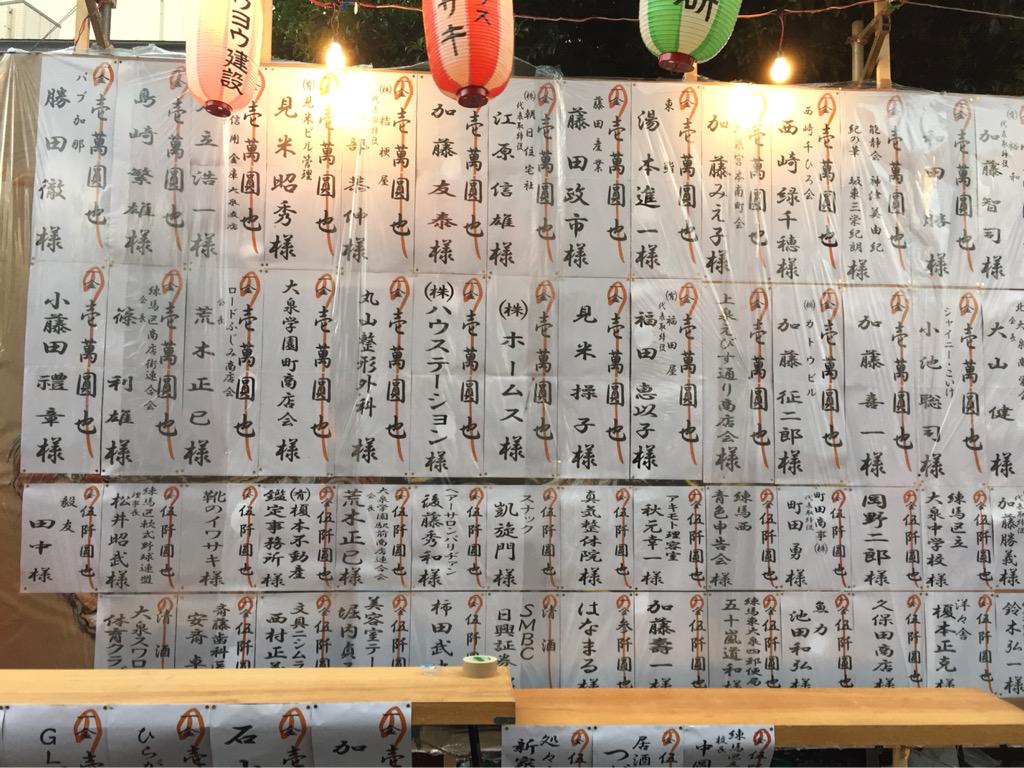 ウヨウ建設
サキ
研
加藤智司様
金壱萬圓也
和田勝様
金壱萬圓也
能静会 神津美由紀
紀の華 城東三栄紀朗様
金壱萬圓也
西崎千ひろ会
西崎緑千穂様
金壱萬圓也
加藤みえ子様
金壱萬圓也
湯本進一様
金壱萬圓也
藤田産業
藤田政市様
金壱萬圓也
㈱朝日住宅社
代表取締役
江原信雄様
金壱萬圓也
加藤友泰様
金壱萬圓也
㈱桔梗屋
代表取締役
金壱萬圓也
㈲見米ビル管理
見米昭秀様
金壱萬圓也
信用金庫大泉支店
立浩一様
金壱萬圓也
島崎繁雄様
金壱萬圓也
パブ加那
勝田徹様
大山健様
金壱萬圓也
シャイニーこいけ
小池聡司様
金壱萬圓也
加藤喜一様
金壱萬圓也
㈱カトウビル
代表取締役
加藤征二郎様
金壱萬圓也
上泉えびす通り商店会様
金壱萬圓也
㈲福田屋
代表取締役
福田恵以子様
金壱萬圓也
見米操子様
金壱萬圓也
㈱ホームス様
金壱萬圓也
㈱ハウステーション様
金壱萬圓也
丸山整形外科様
金壱萬圓也
大泉学園町商店会様
金壱萬圓也
ロードふじみ商店会
会長
荒木正巳様
金壱萬圓也
練馬区商店街連合会
会長
篠利雄様
金壱萬圓也
小藤田禮章様
代表取締役
加藤勝義様
金伍阡圓也
練馬区立
大泉中学校様
金伍阡圓也
岡野二郎様
金伍阡圓也
町田商事㈱
代表取締役
町田勇様
金伍阡圓也
練馬西
青色申告会様
金伍阡圓也
アキモト理容室
秋元幸一様
金伍阡圓也
真気整体院様
金伍阡圓也
スナック
凱旋門様
金伍阡圓也
後藤秀和様
金伍阡圓也
大泉学園駅前商店連合会
会長
荒木正巳様
金伍阡圓也
㈲榎本不動産
鑑定事務所様
金伍阡圓也
靴のイワサキ様
金伍阡圓也
練馬区軟式野球連盟
理事長
松井昭武様
金伍阡圓也
毅友
田中様
鈴木弘一
金伍阡圓也
洋々舎
榎本正克
金伍阡圓也
久保田商店
金伍阡圓也
魚力
池田和弘様
金伍阡圓也
練馬東大泉四郵便局
五十嵐道和様
金伍阡圓也
加藤壽一
金参阡圓也
はなまる
清酒
SMBC
日興証券
金伍阡圓也
柿田武
金伍阡圓也
美容室テー
堀内貞
金伍阡圓也
文具ニシムラ
西村正
金伍阡圓也
斎藤歯科医
安斎
清酒
大泉スワロー
体育クラブ
金壱
加
金壱
石
金壱
ひら
金壱
GL
練馬区立
校長
中
金
居酒
つ
金
処々
新宿